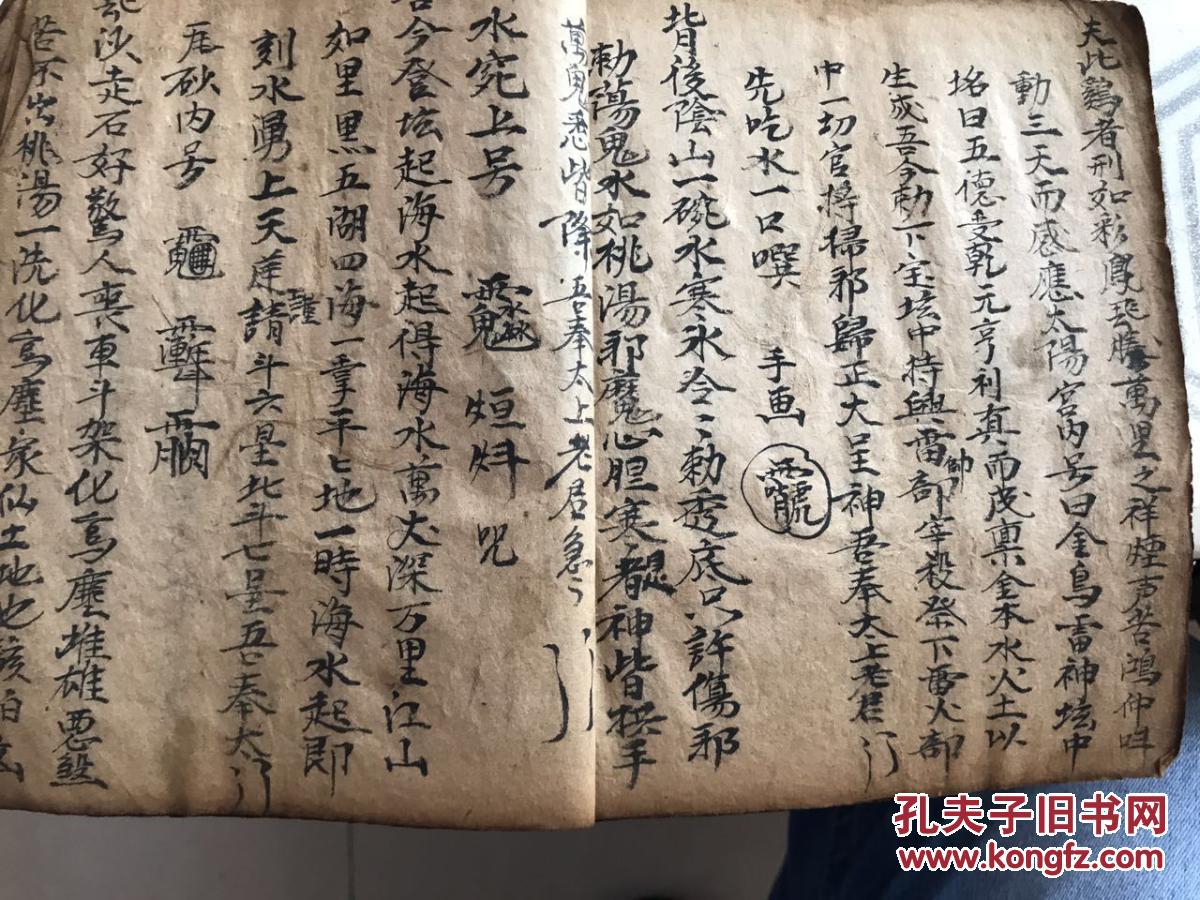 夫此鷄者刑如彩鳳飛騰萬里之祥煙声若鴻仲叫
動三天而感應太陽宮内号曰金鳥雷神坛中
名曰五德受乾元亨利真而茂禀金木水火土以
生成吾今勅下宝坛中持與雷部帥宰殺祭下雷火部
中一切官将掃邪歸正大呈神吾奉太上老君
先吃水一口噀 手画
背後陰山一碗水寒氷冷〻勅透底只許傷邪
勅蕩鬼水如桃湯邪魔心胆寒神皆拱手
萬鬼悉皆降吾奉太上老君急〻
水窕上号 烜炓 咒
吾今登坛起海水起得海水萬丈深万里江山
如里黑五湖四海一掌平七地一時海水起即
刻水湧上天莲謹請斗六星北斗七星吾奉太
瓦砂内号
飛沙走石好驚人喪車斗架化爲塵堆雄悪煞
桃湯一洗化爲塵家仙土地
孔夫子旧书网
www.kongfz.com